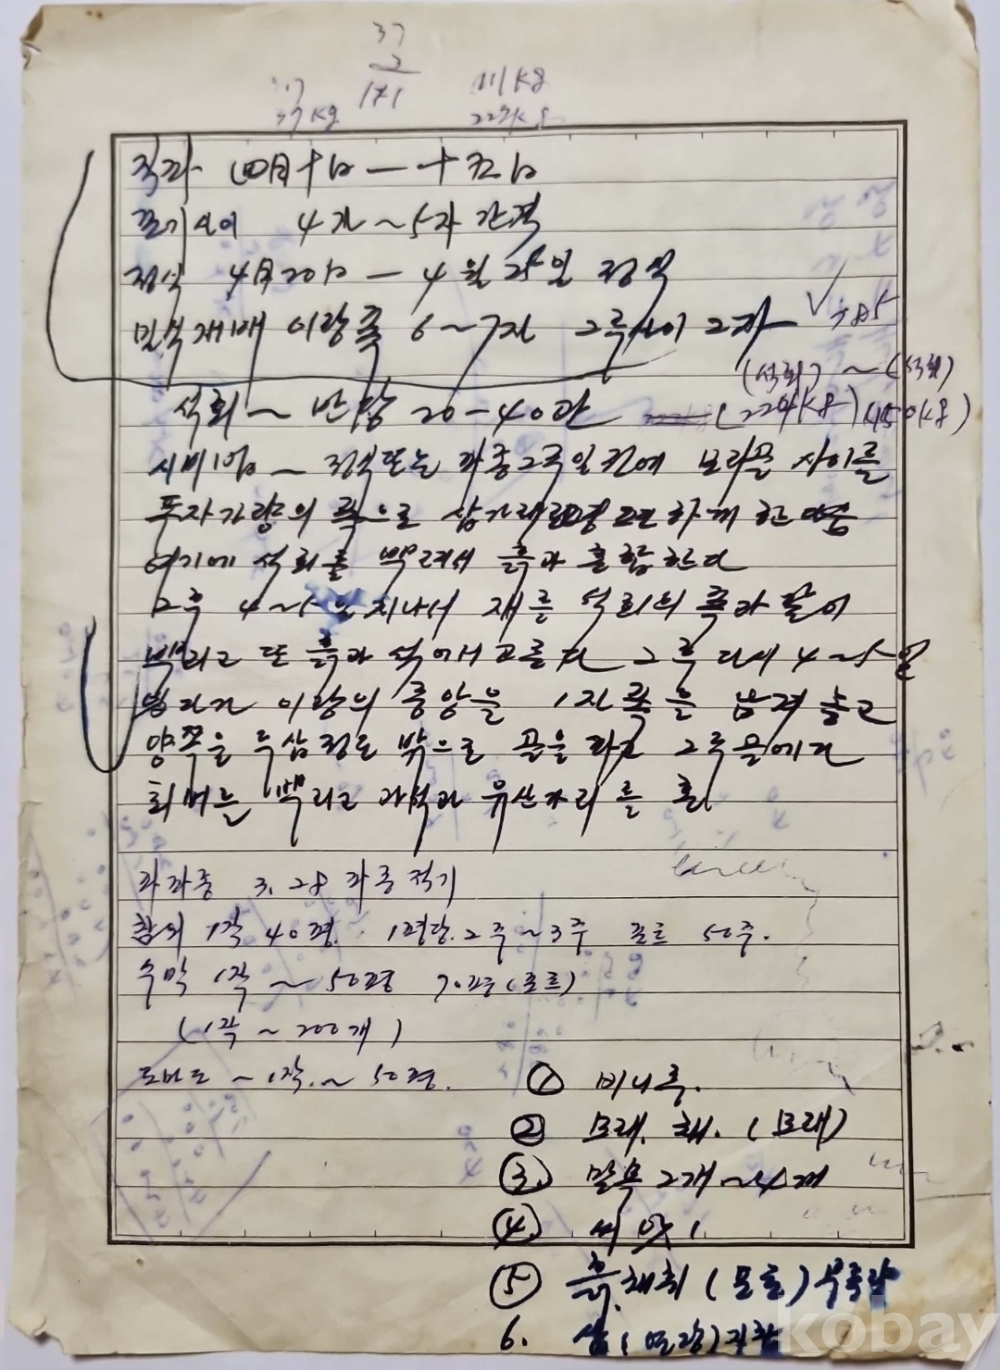 37
3
171
111kg
37kg
직파 四月十日 — 十五日
포기사이 4자 ~ 5자 간격
정식 4月20日 — 4월 25일 정식
밀식재배 이랑폭 6 ~ 7자 그루사이 2자
(석회) ~ (석회)
석회 ~ 반당 20 - 40관 (224kg) (450kg)
시비법 ~ 정식또는 파종 2주일전에 보리골 사이를
두자가량의 폭으로 삽가래로 편하게 한 다음
여기에 석회를 뿌려서 흙과 혼합한다
그후 4 ~ 5일 지나서 재를 석회의 폭과 같이
뿌리고 또 흙과 섞어서 고른 다 그후 다시 4 ~ 5일
있다가 이랑의 중앙을 1자 폭을 남겨 놓고
양쪽을 두삽정도 밖으로 골을 파고 그 골에다
퇴비는 뿌리고 과석과 유산가리를 혼
파종 3. 28 파종 적기
참외 1작 40평. 1평당. 2주 ~ 3주 포트 50주.
수박 1작 ~ 50평 70주 (포트)
(1작 ~ 200개)
도마도 ~ 1작. ~ 50평.
① 비니루.
② 모래. 채. (모래)
③ 말목 2개 ~ 4개
④ 씨앗
⑤ 흙.채취 (포트) 부족량
6. 삽
kobay